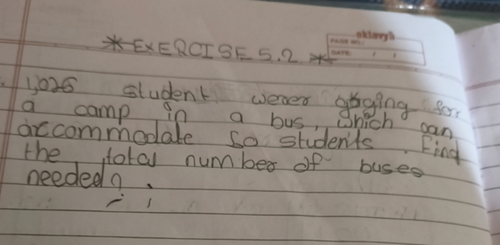 sklavy3
PAGE NO.:
DATE: / /
* EXERCISE 5.2 *
1,026 student wener goging for
a camp in a bus, which can
accommodate 50 students. Find
the total number of buses
needed?